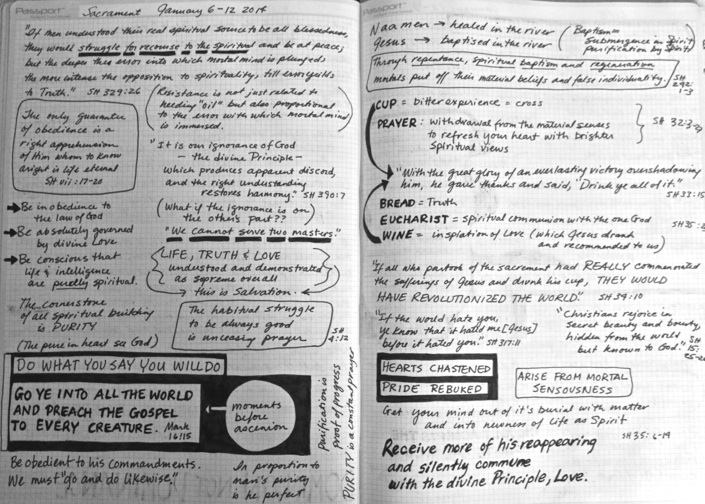 Passport
Sacrament January 6-12 2014
"If men understood their real spiritual source to be all blessedness,
they would struggle for recourse to the spiritual and be at peace;
but the deeper the error into which mortal mind is plunged,
the more intense the opposition to spirituality, till error yields
to Truth." SH 329:26
(Resistance is not just related to
needing "oil" but also proportional
to the error with which mortal mind
is immersed.
The only guarantee
of obedience is a
right apprehension
of Him whom to know
aright is life eternal
SH vii:17-20
"It is our ignorance of God
- the divine Principle -
which produces apparent discord,
and the right understanding
restores harmony." SH 390:7
(What if the ignorance is on
the other's part??)
"We cannot serve two masters."
Be in obedience to
the law of God
Be absolutely governed
by divine Love
Be conscious that
life & intelligence
are purely spiritual.
LIFE, TRUTH & LOVE
understood and demonstrated
as supreme over all
this is Salvation.
The cornerstone
of all spiritual building
is PURITY
(The pure in heart see God)
The habitual struggle
to be always good
is unceasing prayer
SH
4:12
DO WHAT YOU SAY YOU WILL DO
GO YE INTO ALL THE WORLD
AND PREACH THE GOSPEL
TO EVERY CREATURE. Mark
16:15
moments
before
ascension
Purification is
proof of progress
PURITY is a constant prayer
Be obedient to his commandments.
We must "go and do likewise."
In proportion to
man's purity
is he perfect
Passport
Naaman → healed in the river
Jesus → baptised in the river
(Baptism =
Submergence in Spirit
purification by Spirit)
Through repentance, spiritual baptism and regeneration
mortals put off their material beliefs and false individuality.
SH
242:
1-3
CUP = bitter experience = cross
PRAYER: withdrawal from the material senses
to refresh your heart with brighter
spiritual views
"With the great glory of an everlasting victory overshadowing
him, he gave thanks and said, "Drink ye all of it."
BREAD = Truth
EUCHARIST = spiritual communion with the one God
WINE = inspiration of Love (which Jesus drank
and recommended to us)
"If all who partook of the sacrament had REALLY commemorated
the sufferings of Jesus and drunk his cup, THEY WOULD
HAVE REVOLUTIONIZED THE WORLD."
"If the world hate you,
ye know that it hated me [Jesus]
before it hated you."
"Christians rejoice in
secret beauty and bounty,
hidden from the world
but known to God."
SH
15:
HEARTS CHASTENED
PRIDE REBUKED
ARISE FROM MORTAL
SENSOUSNESS
Get your mind out of it's burial with matter
and into newness of Life as Spirit
SH 35:6-19
Receive more of his reappearing
and silently commune
with the divine Principle, Love.